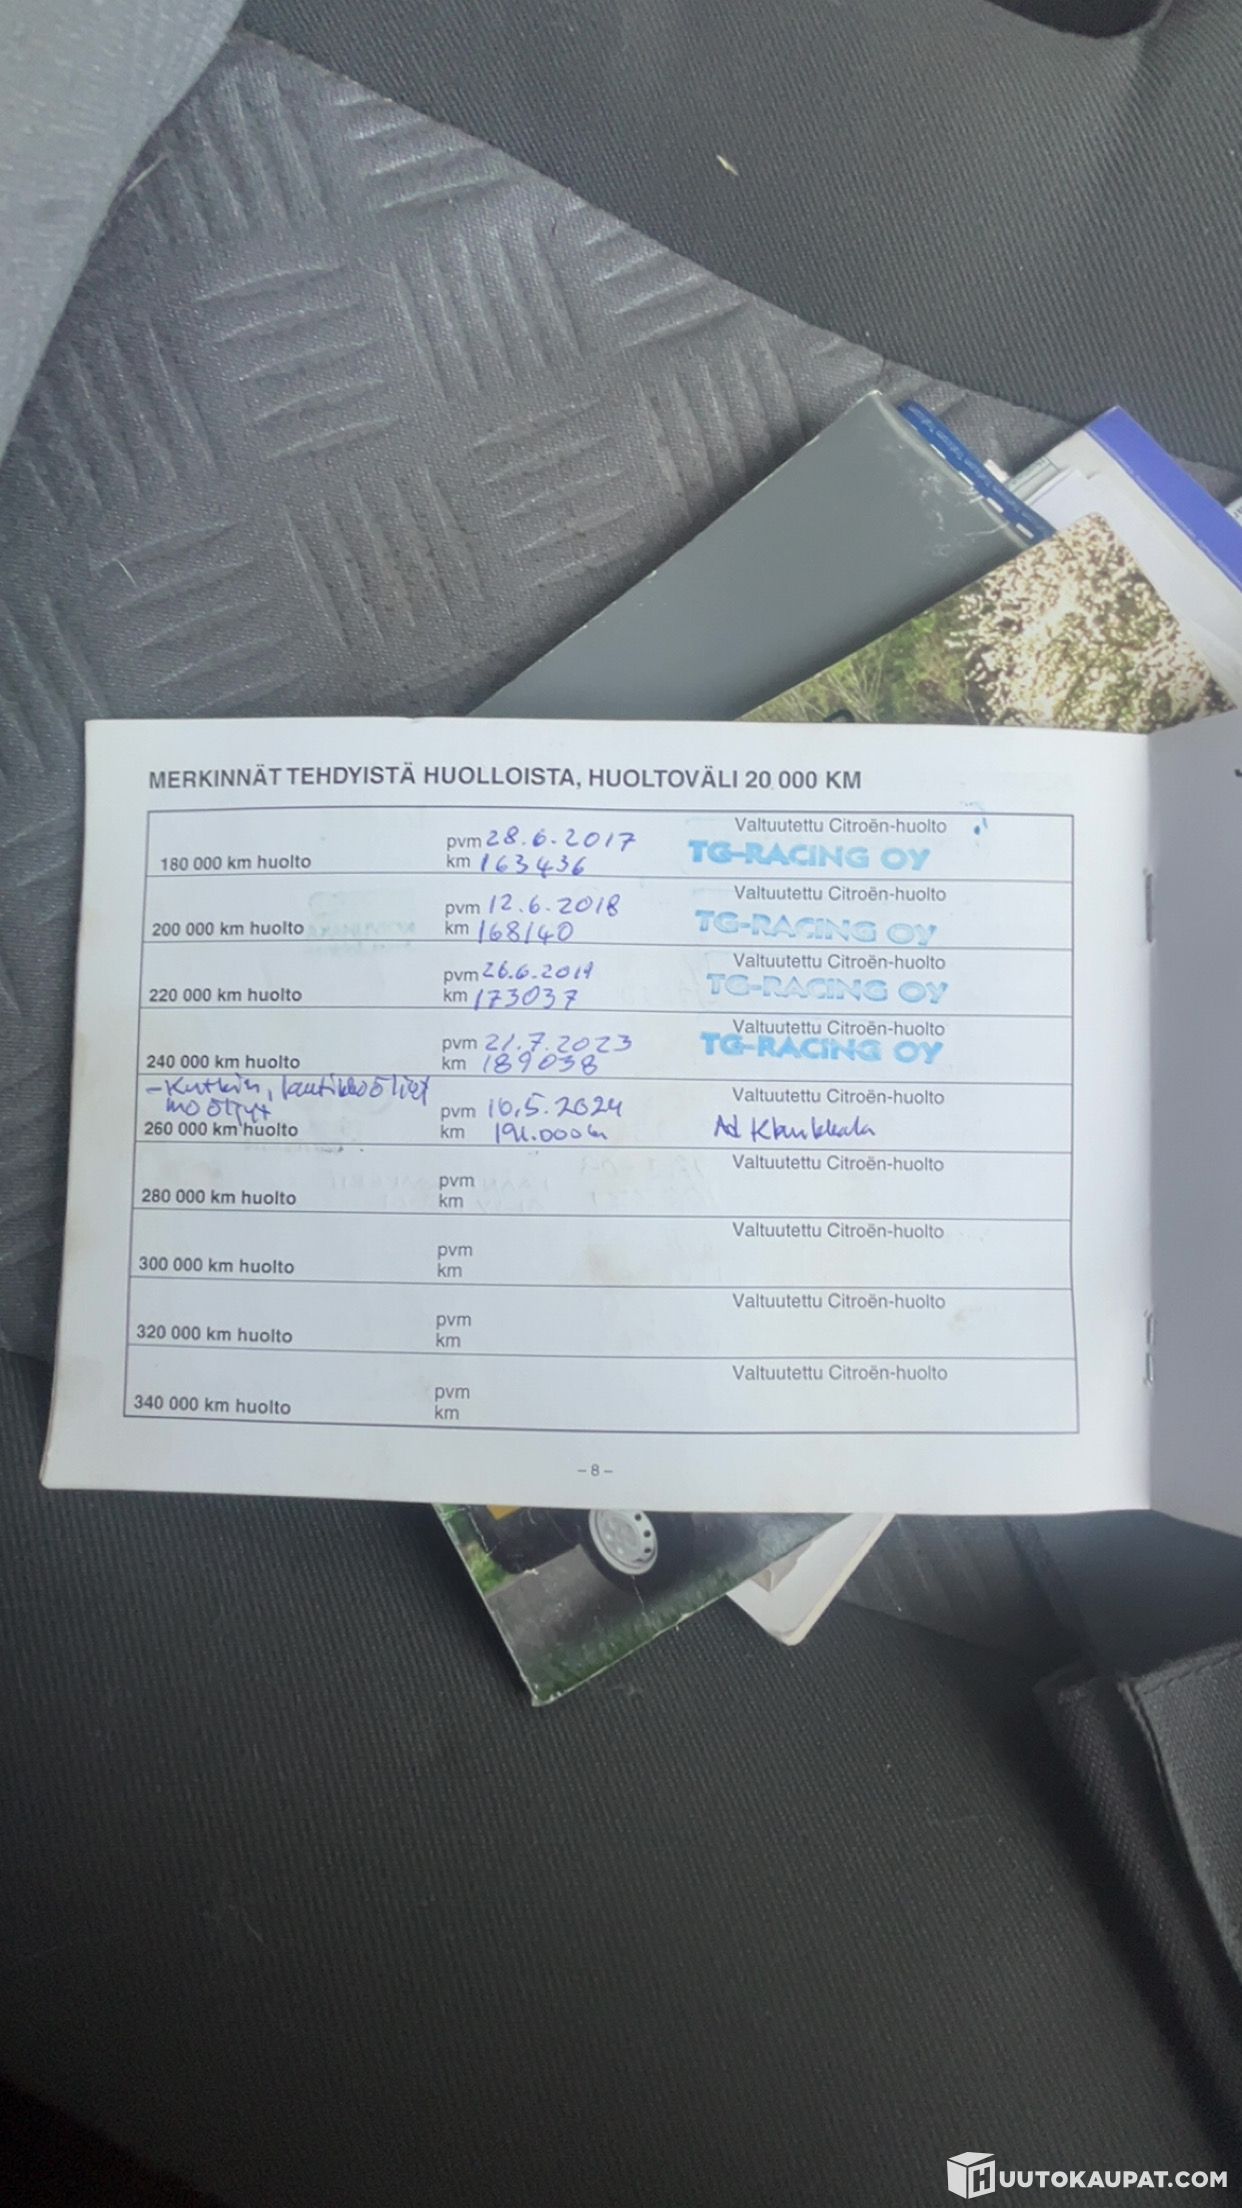 MERKINNÄT TEHDYISTÄ HUOLLOISTA, HUOLTOVÄLI 20 000 KM
180 000 km huolto
pvm 28.6.2017
km 163436
Valtuutettu Citroën-huolto
TG-RACING OY
200 000 km huolto
pvm 12.6.2018
km 168140
Valtuutettu Citroën-huolto
TG-RACING OY
220 000 km huolto
pvm 26.6.2019
km 173037
Valtuutettu Citroën-huolto
TG-RACING OY
240 000 km huolto
pvm 21.7.2023
km 189038
Valtuutettu Citroën-huolto
TG-RACING OY
260 000 km huolto
pvm 5.2024
km
Valtuutettu Citroën-huolto
Ad Klaukkala
280 000 km huolto
pvm
km
Valtuutettu Citroën-huolto
300 000 km huolto
pvm
km
Valtuutettu Citroën-huolto
320 000 km huolto
pvm
km
Valtuutettu Citroën-huolto
340 000 km huolto
pvm
km
Valtuutettu Citroën-huolto
– 8 –
HUUTOKAUPAT.COM